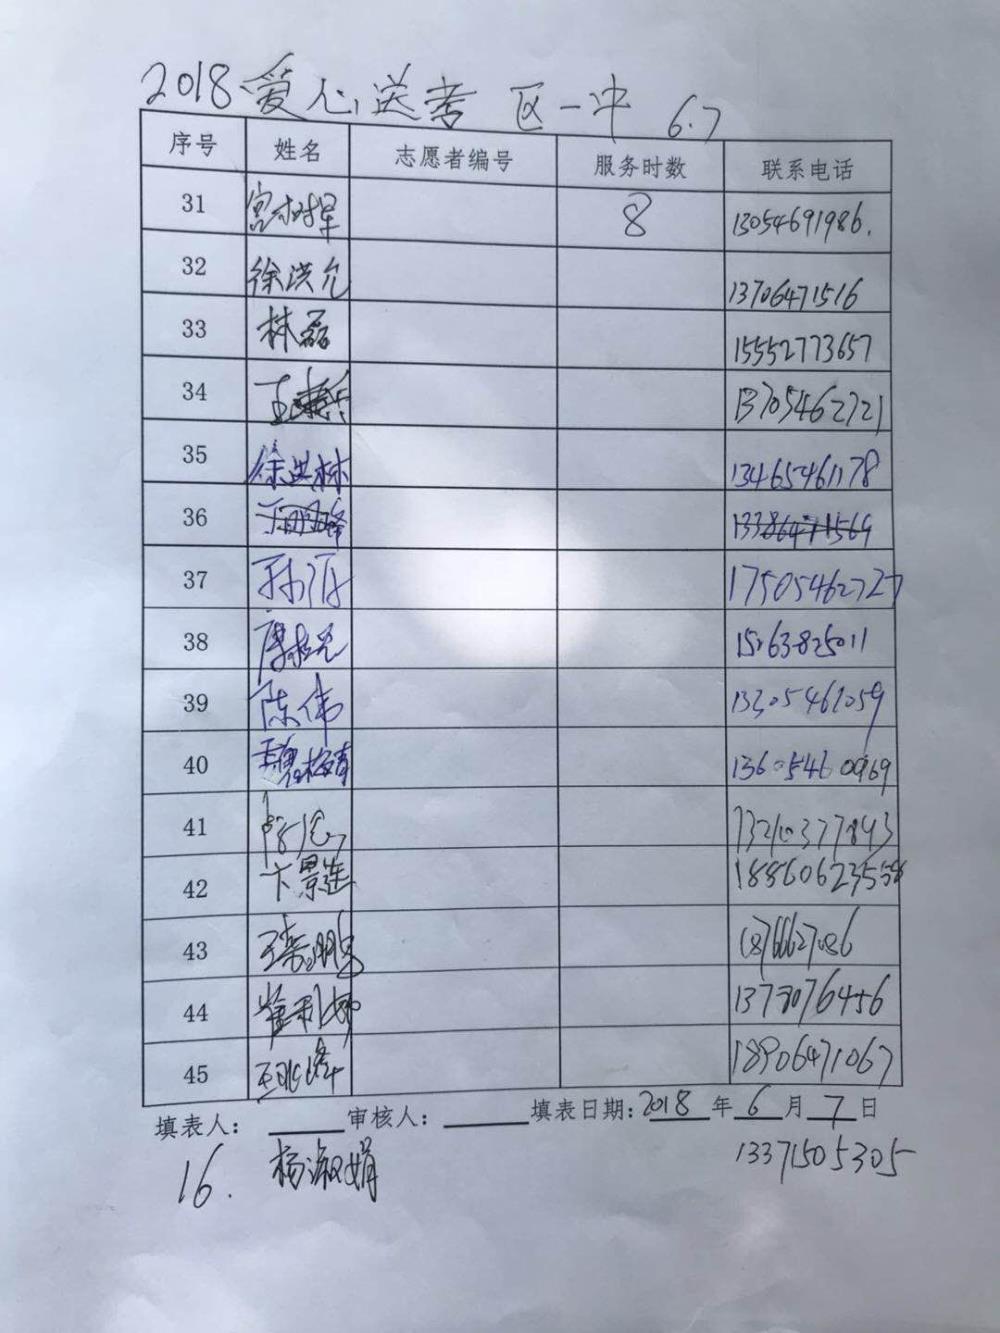 2018 爱心送考 区一中 6.7
序号 姓名 志愿者编号 服务时数 联系电话
31 宫树军 8 13054691986.
32 徐洪允 13706471516
33 林磊 15552773657
34 13705462721
35 徐洪林 13465461178
36
37 17505462727
38 15263825011
39 陈伟 13305461059
40 13605460969
41 13210377893
42 卞景莲
43 18766627086
44 崔利娜
45 18906471067
填表人: 审核人: 填表日期:2018 年 6 月 7 日
16. 杨淑娟 13371505305